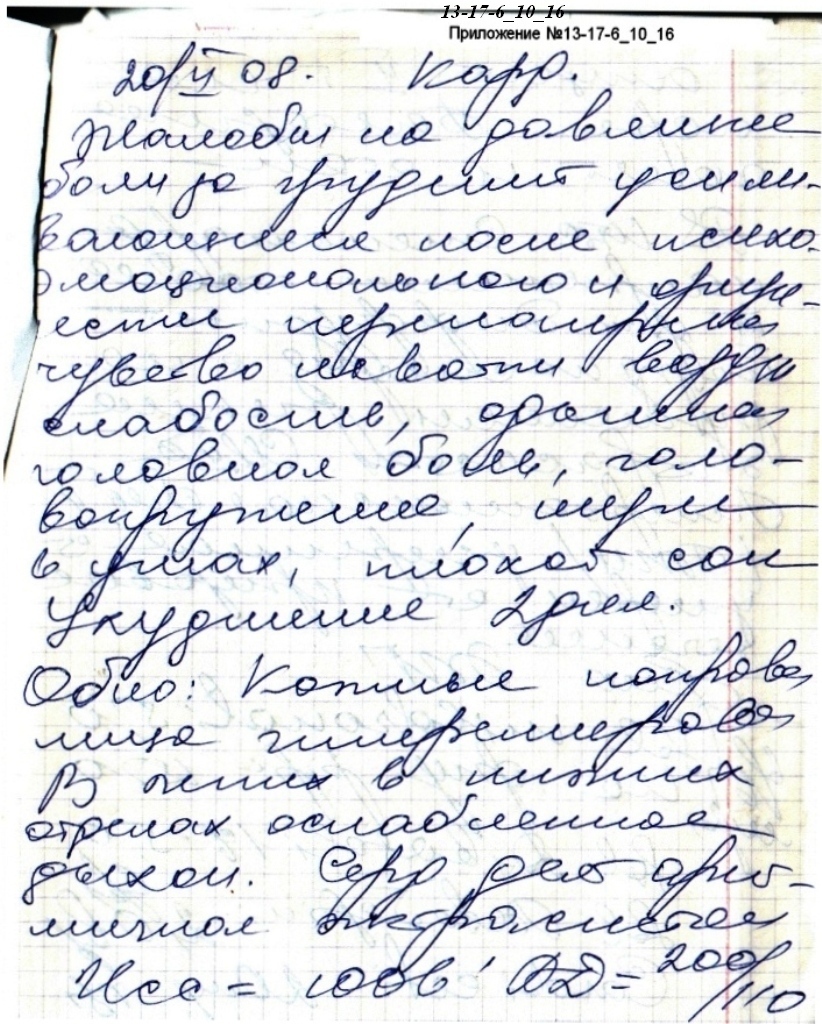 13-17-6_10_16
Приложение №13-17-6_10_16
20/V 08. Кард.
Жалобы на давлящие
боли за грудиной усили-
вающиеся после психо-
эмоционального и физич-
чувство нехватки воздуха
слабость, одышка
головная боль, голо-
вокружение, шум
в ушах, плохой сон
Ухудшение 2 дня.
Об-но: Кожные покровы
лица гиперемирован
В легких в нижних
отделах ослабленное
дыхан. Серд деят арит-
мичная экстрасистол
Чсс = 100 в' АД = 200/110